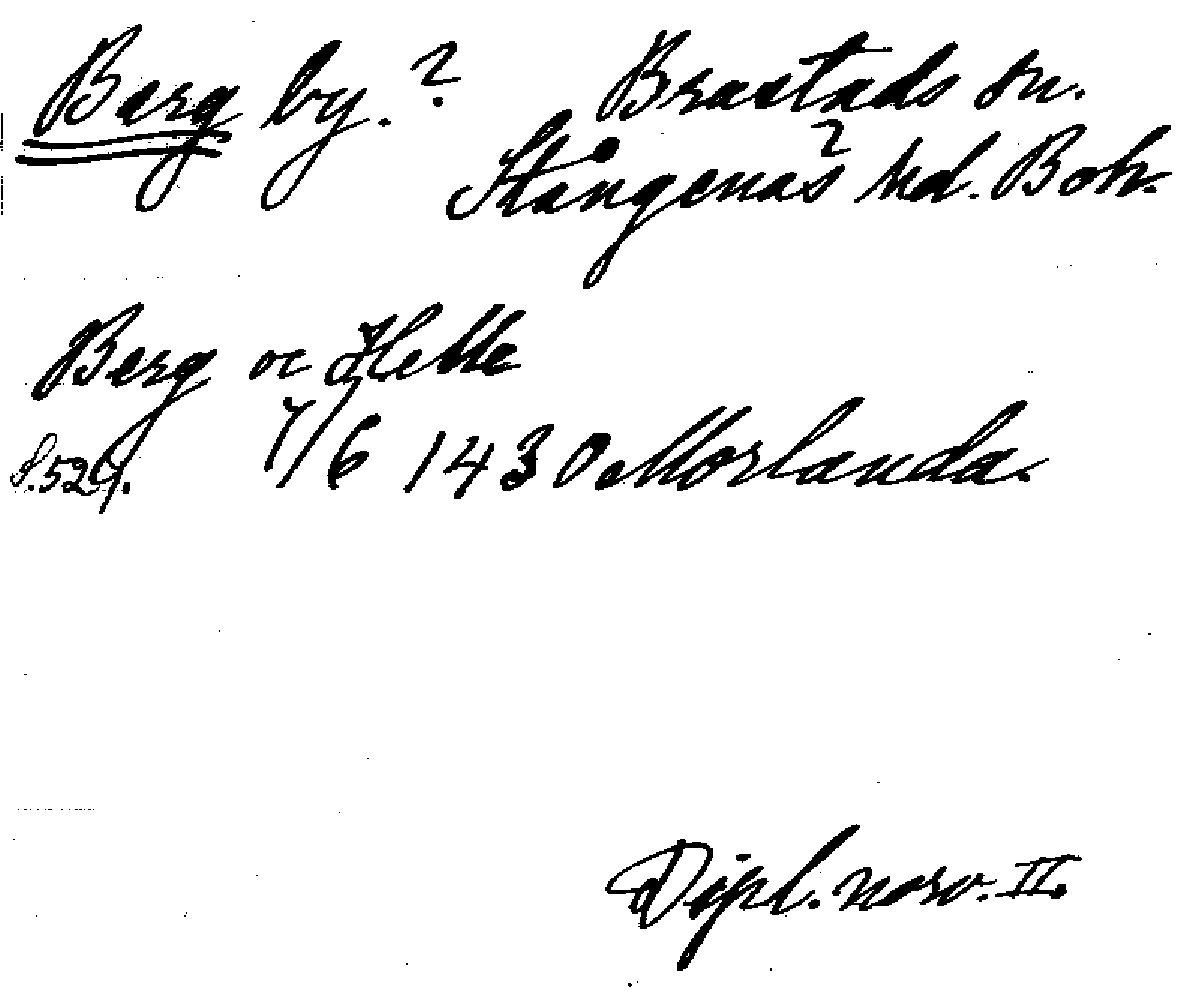 Berg by.? Brastads sn.
Stångenäs hd. Boh.
?
Berg oc Helle
S.529. 7/6 1430 Morlanda.
Dipl. norv. II.